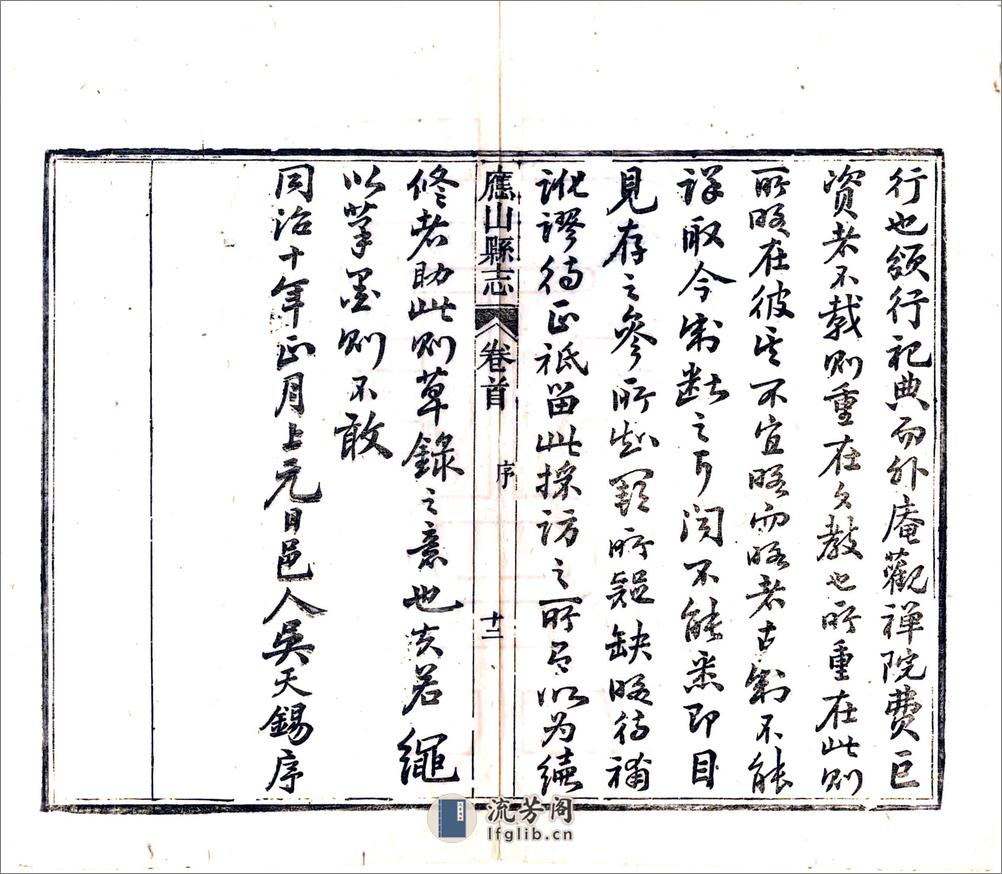 行也頒行祀典而外庵觀禪院費巨
資者不載則重在文教也所重在此則
所略在彼其不宜略而略者古制不能
詳取今制斷之耳聞不能悉即目
見存之參所知闕所疑缺略待補
訛謬待正祗留此採訪之所得以為續
應山縣志
卷首
序
十二
修者助此則草錄之意也夫若繩
以筆墨則不敢
同治十年正月上元日邑人吳天錫序
流芳阁
lfglib.cn